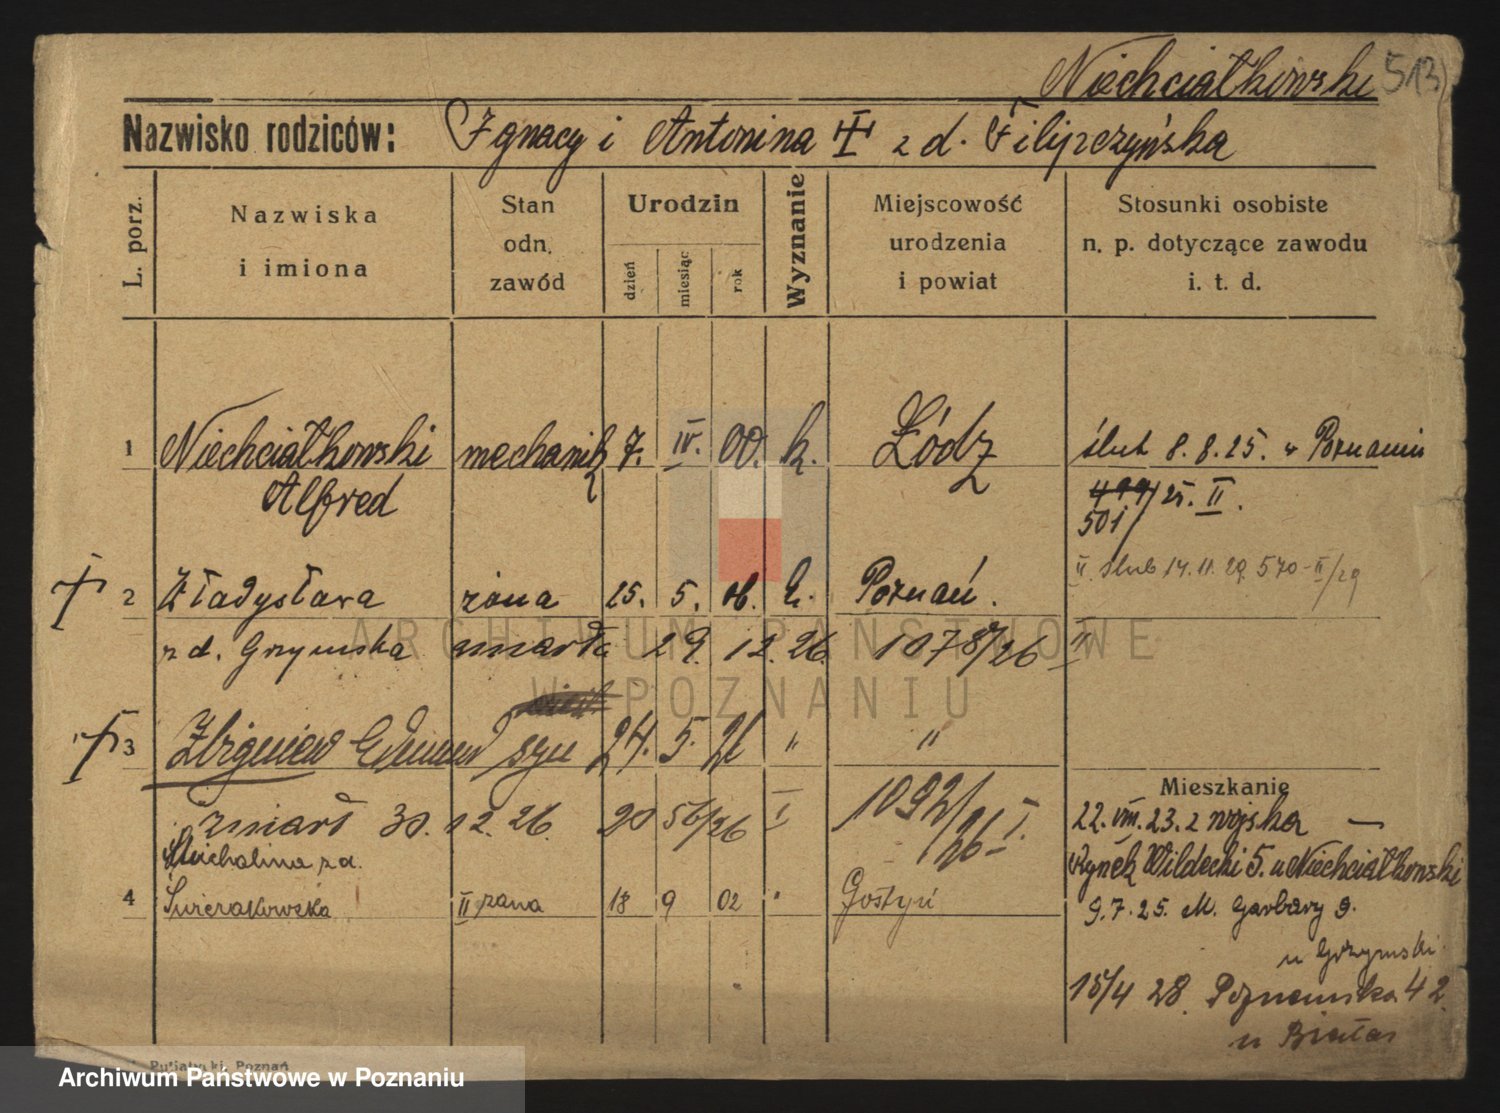 Niechciałkowski 513
Nazwisko rodziców: Ignacy i Antonina z d. Filipczyńska
L. porz.
Nazwiska i imiona
Stan odn. zawód
Urodzin
dzień miesiąc rok
Wyznanie
Miejscowość urodzenia i powiat
Stosunki osobiste n. p. dotyczące zawodu i. t. d.
1 Niechciałkowski mechanik 7. IV. 00. k. Łódz ślub 8.8.25. w Poznaniu
Alfred
499/25. II.
501
II ślub 14.11.29. 570-II/29
2 Władysława żona 25. 5. 06. k. Poznań.
z d. Grzymska umarła 29. 12. 26. 1078/26 II
3 Zbigniew Edmund syn 24. 5. 26 " "
zmarł 30. 12. 26. 20 56/26 I 1092/26 I.
Michalina z d.
4 Świerakowska II żona 18 9 02 " Gostyń
Mieszkanie
22. VIII. 23. z wojska —
Rynek Wildecki 5. u Niechciałkowski
9.7.25. M. Garbary 9.
u Grzymski
15/4 28. Poznańska 42.
u Białas
ARCHIWUM PAŃSTWOWE
W POZNANIU
Putiatycki, Poznań
Archiwum Państwowe w Poznaniu